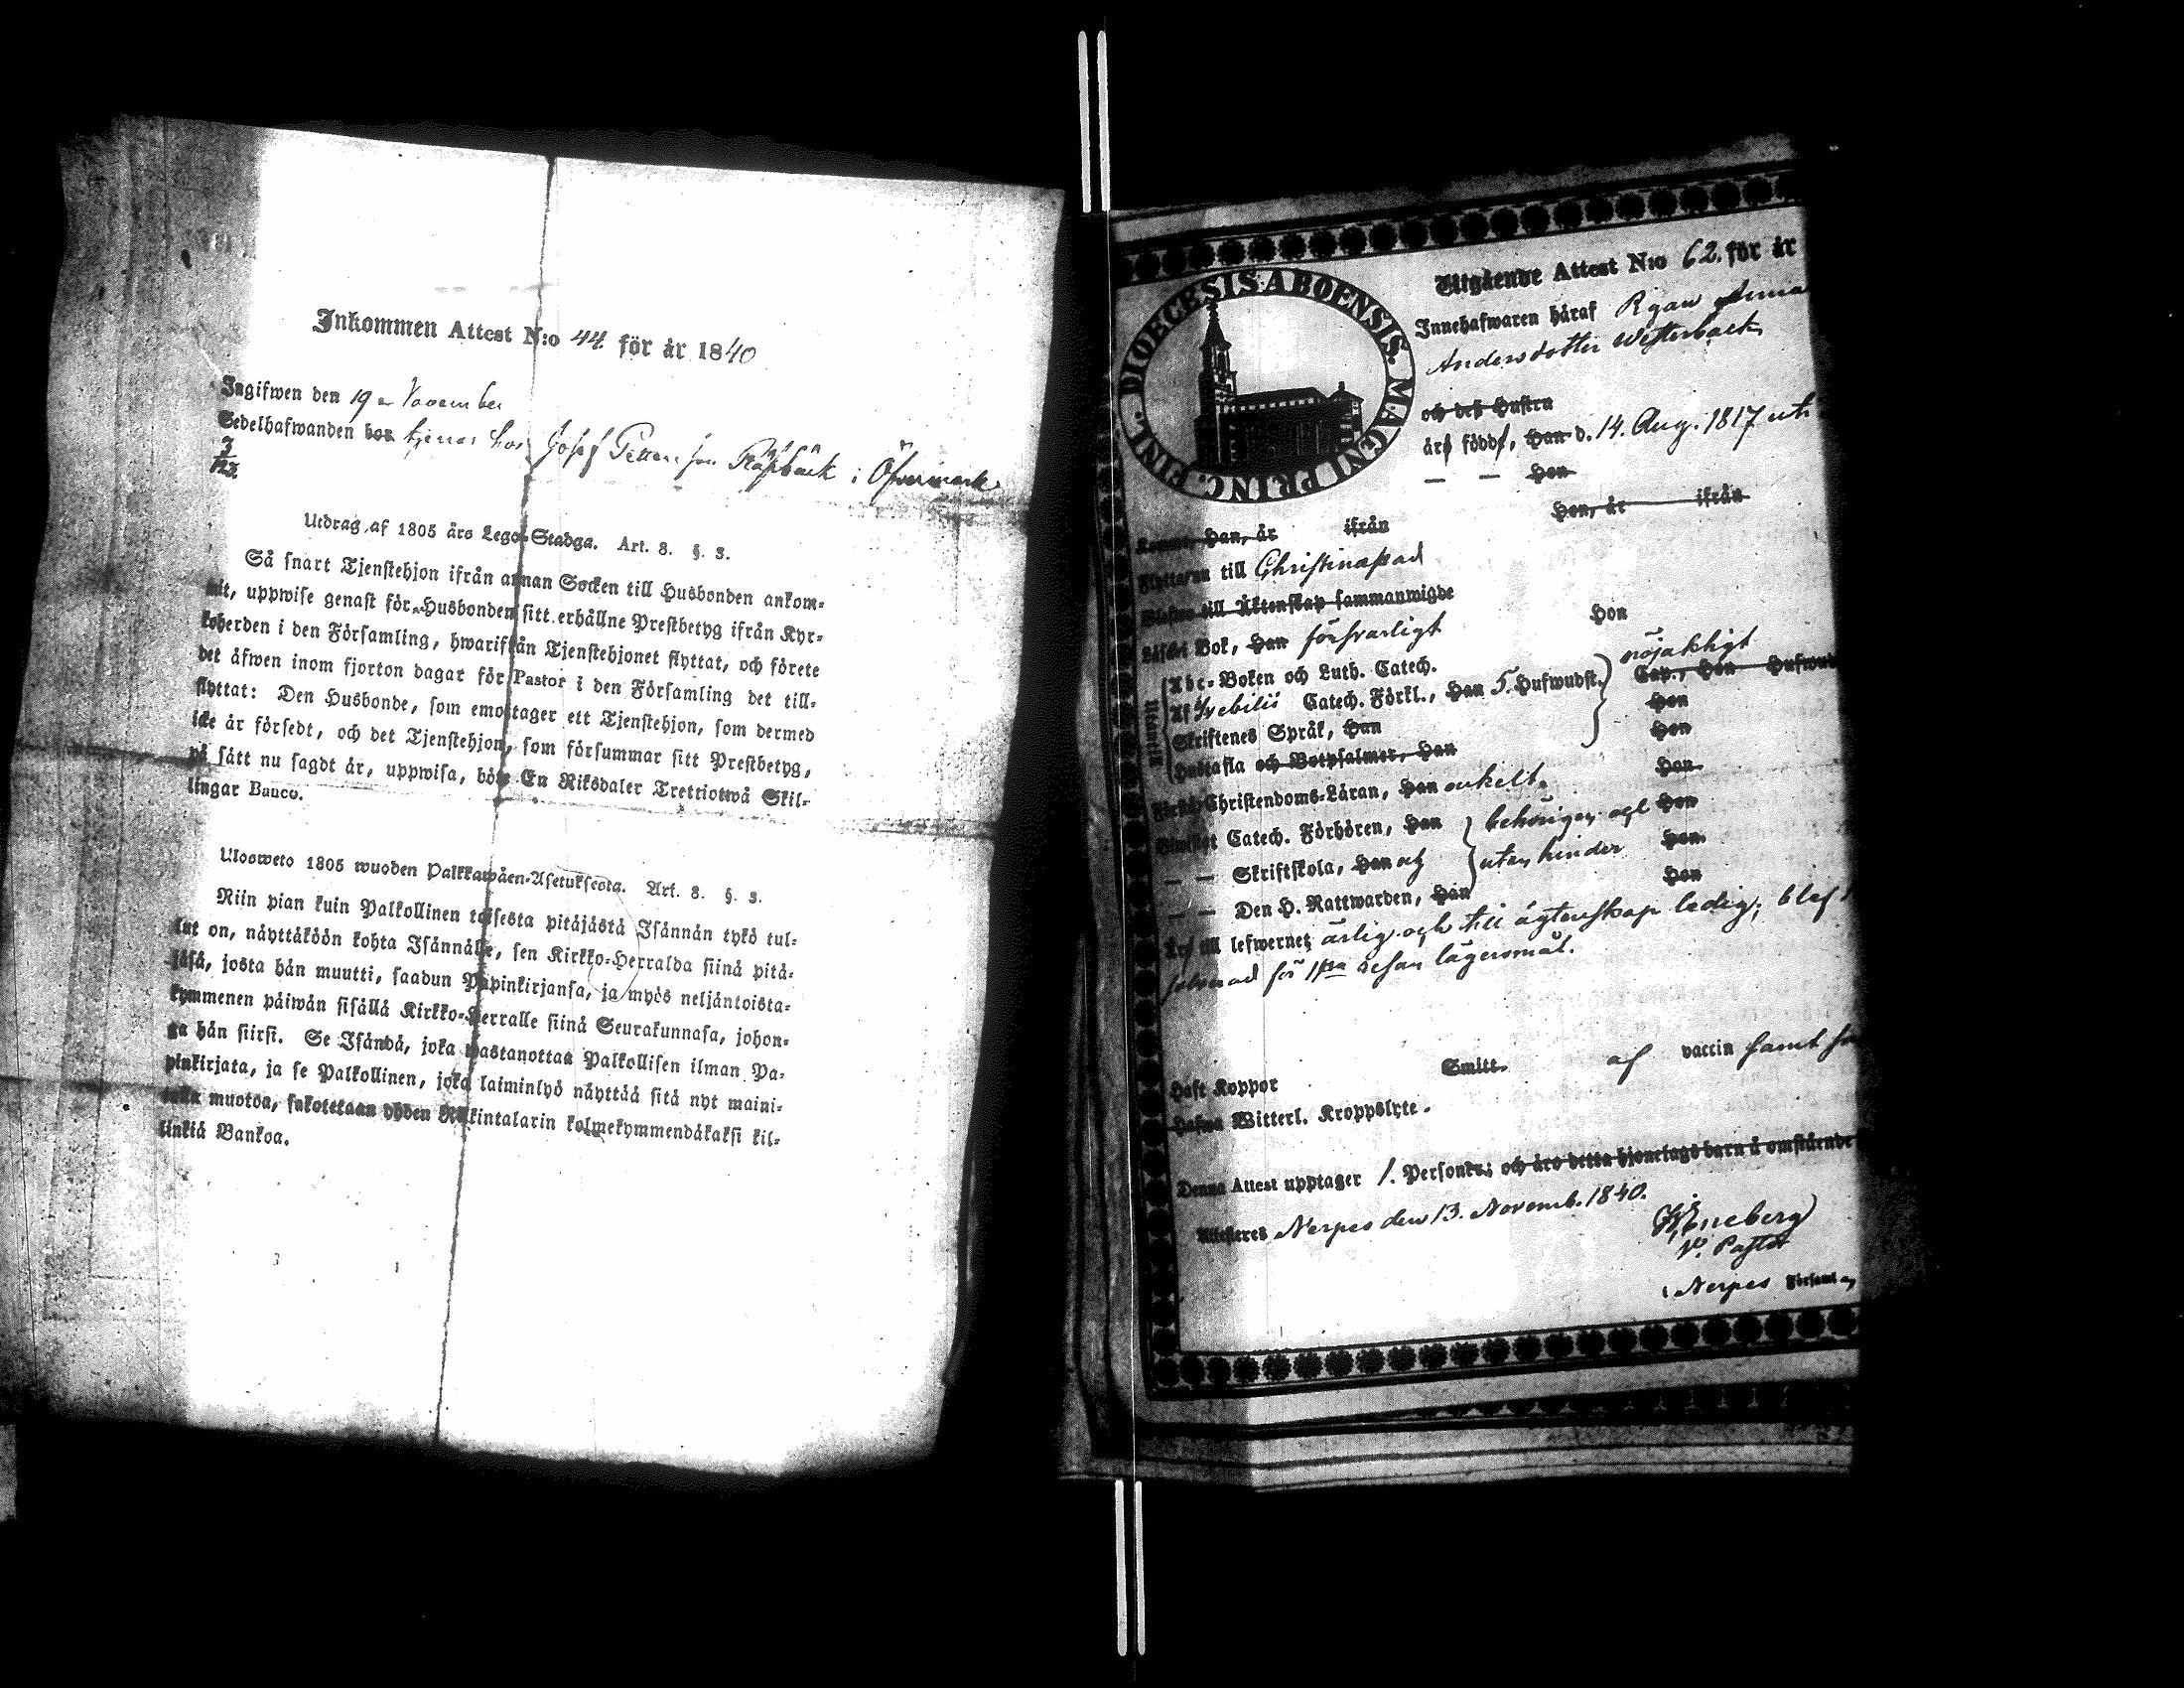 Inkommen Attest N:o 44 för år 1840
Ingifwen den 19 November
Sedelhafwanden bor tjenar hos Josef Petterson Råfsbäck i Öfvermark
3
123.
Utdrag af 1805 års Lego-Stadga. Art. 8. §. 3.
Så snart Tjenstehjon ifrån annan Socken till Husbonden ankom-
mit, uppwise genast för Husbonden sitt erhållne Prestbetyg ifrån Kyr-
koherden i den Församling, hwarifrån Tjenstehjonet flyttat, och förete
det åfwen inom fjorton dagar för Pastor i den Församling det till-
flyttat: Den Husbonde, som emottager ett Tjenstehjon, som dermed
icke är försedt, och det Tjenstehjon, som försummar sitt Prestbetyg,
på sätt nu sagdt är, uppwisa, böte En Riksdaler Trettiotwå Skil-
lingar Banco.
Ulosweto 1805 wuoden Palkkawåen-Asetuksesta. Art. 8. §. 3.
Niin pian kuin Palkollinen toisesta pitåjåstå Isånnån tykö tul-
lut on, nåyttåköön kohta Isånnålle, sen Kirkko-Herralda siinå pitå-
jåså, josta hån muutti, saadun Papinkirjansa, ja myös neljåntoista-
kymmenen påiwån sisållå Kirkko-Herralle siinå Seurakunnasa, johon-
ga hån siirsi. Se Isåndå, joka wastanottaa Palkollisen ilman Pa-
pinkirjata, ja se Palkollinen, joka laiminlyö nåyttåå sitå nyt maini-
tulla muotoa, sakotetaan yhden Rikintalarin kolmekymmendåkaksi kil-
linkiå Bankoa.
DIOECESIS ABOENSIS. MAGNI PRINC. FINL.
Utgående Attest N:o 62. för år
Innehafwaren håraf Pigan Anna
Andersdotter Westerback
och deß Hustru
års född, Han d. 14. Aug. 1817 uti
— — Hon
Komne Han, år ifrån Hon, år ifrån
Flyttar nu till Christinastad
Blefne till Äktenskap sammanwigde
Låser i Bok, Han försvarligt Hon
Utantill
Abc-Boken och Luth. Catech. nöjaktigt
Af Svebilii Catech. Förkl., Han 5. Hufwudst. Cap., Hon Hufwud
Skriftenes Språk, Han Hon
Hustafla och Botpsalmer, Han Hon
Förstår Christendoms-Låran, Han enkelt. Hon
Bewistat Catech. Förhören, Han behörigen och Hon
— — Skriftskola, Han och utan hinder Hon
— — Den H. Nattwarden, Han Hon
Är till lefwernet ärlig och till ägtenskap ledig; blef
för 1sta resan lägersmål.
Haft Koppor Smitt. af vaccin samt
Hafwa Witterl. Kroppslyte.
Denna Attest upptager 1. Personer; och åro detta hjonelags barn å omstående
Attesteres Nerpes den 13. Novemb. 1840.
V. Pastor
i Nerpes Församl.